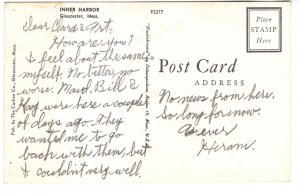 INNER HARBOR
Gloucester, Mass.
P2277
Dear Clara & Art.
How are you?
I feel about the same
myself. No better, no
worse. Maid, Bill &
Kay were here a couple
of days ago. They
wanted me to go
back with them, but
I couldn't very well.
Pub. by The Curteich Co., Gloucester, Mass.
Post Card
ADDRESS
Place
STAMP
Here
No news from here.
So long for now.
As ever
Hiram.